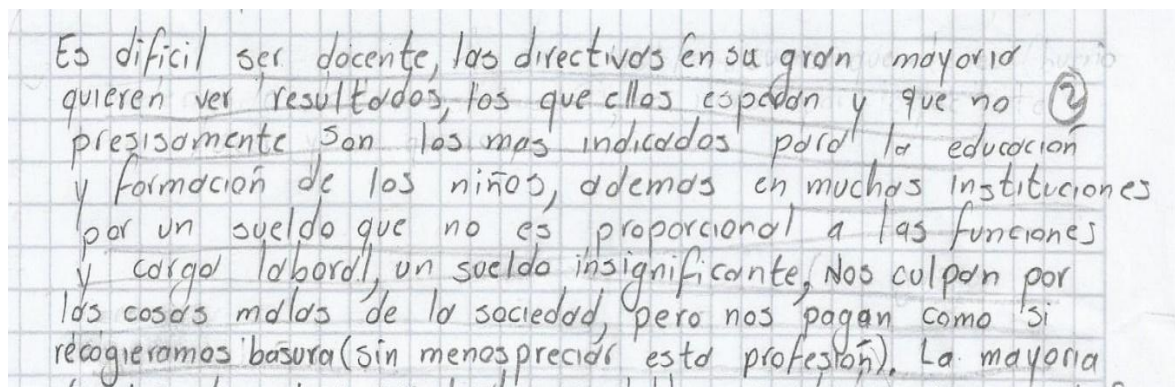 Es dificil ser docente, las directivas en su gran mayoria
quieren ver resultados, los que ellos espedan y que no ②
presisamente son los mas indicados para la educación
y formación de los niños, ademas en muchas instituciones
por un sueldo que no es proporcional a las funciones
y carga laboral, un sueldo insignificante, Nos culpan por
las cosas malas de la sociedad, pero nos pagan como si
recogieramos basura (sin menospreciar esta profesión). La mayoria